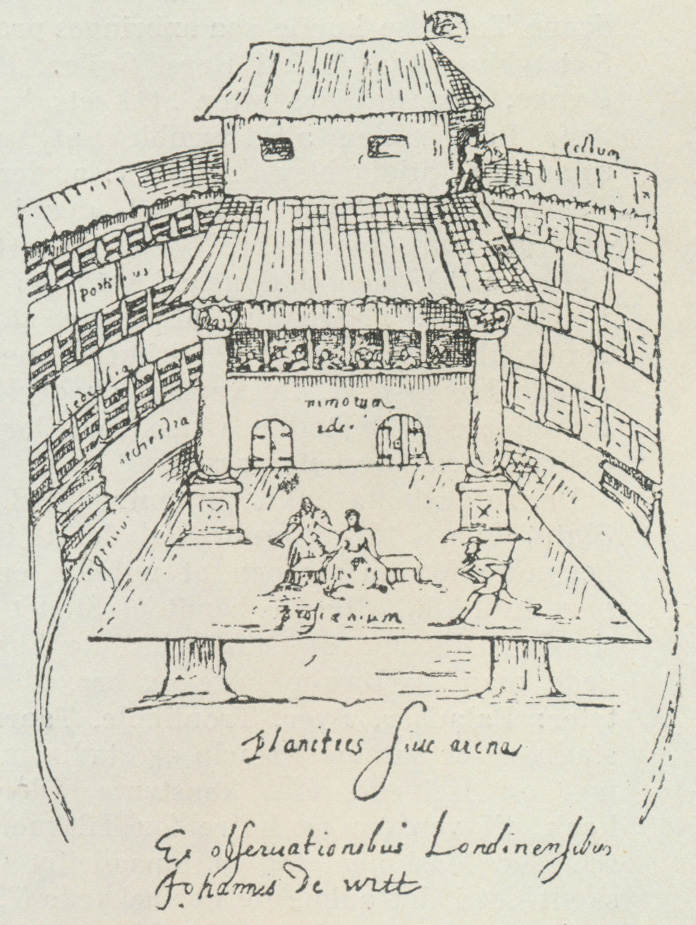 tectum
porticus
sedilia
orchestra
mimorum
ædes
ingressus
proscænium
Planities siue arena
Ex obseruationibus Londinensibus
Johannis De witt